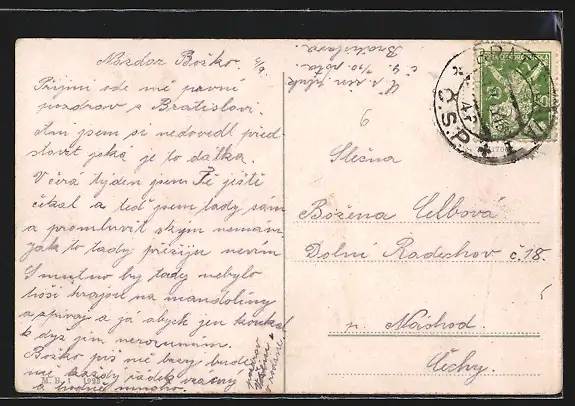 Nazdar Boško. 4/9.
Přijmi ode mě první
pozdrav z Bratislavi.
Ani jsem si nedovedl před
stavit jaká je to dálka.
Včera týden jsem Tě ještě
čekal a teď jsem tady sám
a promluvit s kým nemám
jak to tady přežiju nevím
Smutno by tady nebylo
hoši hrajou na mandolíny
a zpívají a já abych jen koukal
k dyž jim nerozumím.
Boško piš mě brzy bude
mě každý řádek vzácný
a hodně
pozdrav
M. B. 1923
Bratislava.
6
Slečna
Božena Celbová
Dolní Radechov č. 18.
p. Náchod.
Čechy.
Č.S.P.